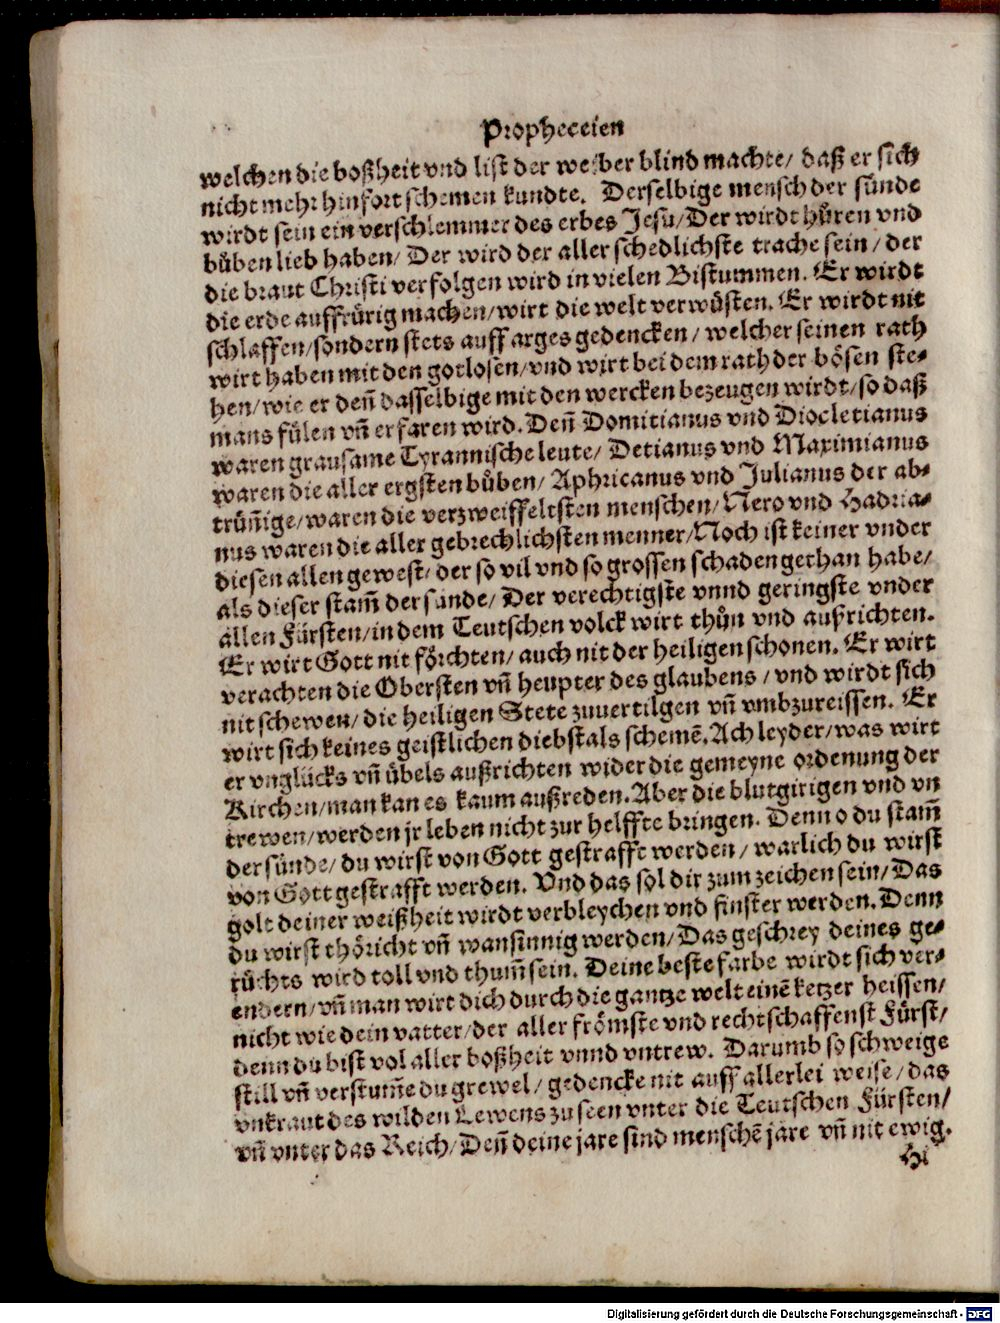 Propheceien
welchen die boßheit vnd list der weiber blind machte/ daß er sich
nicht mehr hinfort schemen kundte. Derselbige mensch der sünde
wirdt sein ein verschlemmer des erbes Jesu/Der wirdt hůren vnd
bůben lieb haben/ Der wird der aller schedlichste trache sein/ der
die braut Christi verfolgen wird in vielen Bistummen. Er wirdt
die erde auffrůrig machen/wirt die welt verwůsten. Er wirdt nit
schlaffen/sondern stets auff arges gedencken/ welcher seinen rath
wirt haben mit den gotlosen/vnd wirt bei dem rath der bösen ste⸗
hen/wie er deñ dasselbige mit den wercken bezeugen wirdt/so daß
mans fülen vñ erfaren wird. Deñ Domitianus vnd Diocletianus
waren grausame Tyrannische leute/ Detianus vnd Maximianus
waren die aller ergsten bůben/ Aphricanus vnd Julianus der ab⸗
trüñige/waren die verzweiffeltsten menschen/Nero vnd Hadria⸗
nus waren die aller gebrechlichsten menner/Noch ist keiner vnder
diesen allen gewest/ der so vil vnd so grossen schaden gethan habe/
als dieser stam̃ der sünde/ Der verechtigste vnnd geringste vnder
allen Fürsten/in dem Teutschen volck wirt thůn vnd außrichten.
Er wirt Gott nit förchten/ auch nit der heiligen schonen. Er wirt
verachten die Obersten vñ heupter des glaubens/ vnd wirdt sich
nit schewen/ die heiligen Stete zuuertilgen vñ vmbzureissen. Er
wirt sich keines geistlichen diebstals schemẽ. Ach leyder/was wirt
er vnglücks vñ übels außrichten wider die gemeyne ordenung der
Kirchen/man kan es kaum außreden. Aber die blutgirigen vnd vn
trewen/werden jr leben nicht zur helffte bringen. Denn o du stam̃
der sünde/ du wirst von Gott gestrafft werden/ warlich du wirst
von Gott gestrafft werden. Vnd das sol dir zum zeichen sein/Das
golt deiner weißheit wirdt verbleychen vnd finster werden. Denn
du wirst thöricht vñ wansinnig werden/Das geschrey deines ge⸗
rüchts wird toll vnd thum̃ sein. Deine beste farbe wirdt sich ver⸗
endern/vñ man wirt dich durch die gantze welt einẽ ketzer heissen/
nicht wie dein vatter/der aller frömste vnd rechtschaffenst Fürst/
denn du bist vol aller boßheit vnnd vntrew. Darumb so schweige
still vñ verstum̃e du grewel/ gedencke nit auff allerlei weise/ das
vnkraut des wilden Lewens zu seen vnter die Teutschen Fürsten/
vñ vnter das Reich/Deñ deine jare sind menschẽ jare vñ nit ewig.
Hi
Digitalisierung gefördert durch die Deutsche Forschungsgemeinschaft - DFG